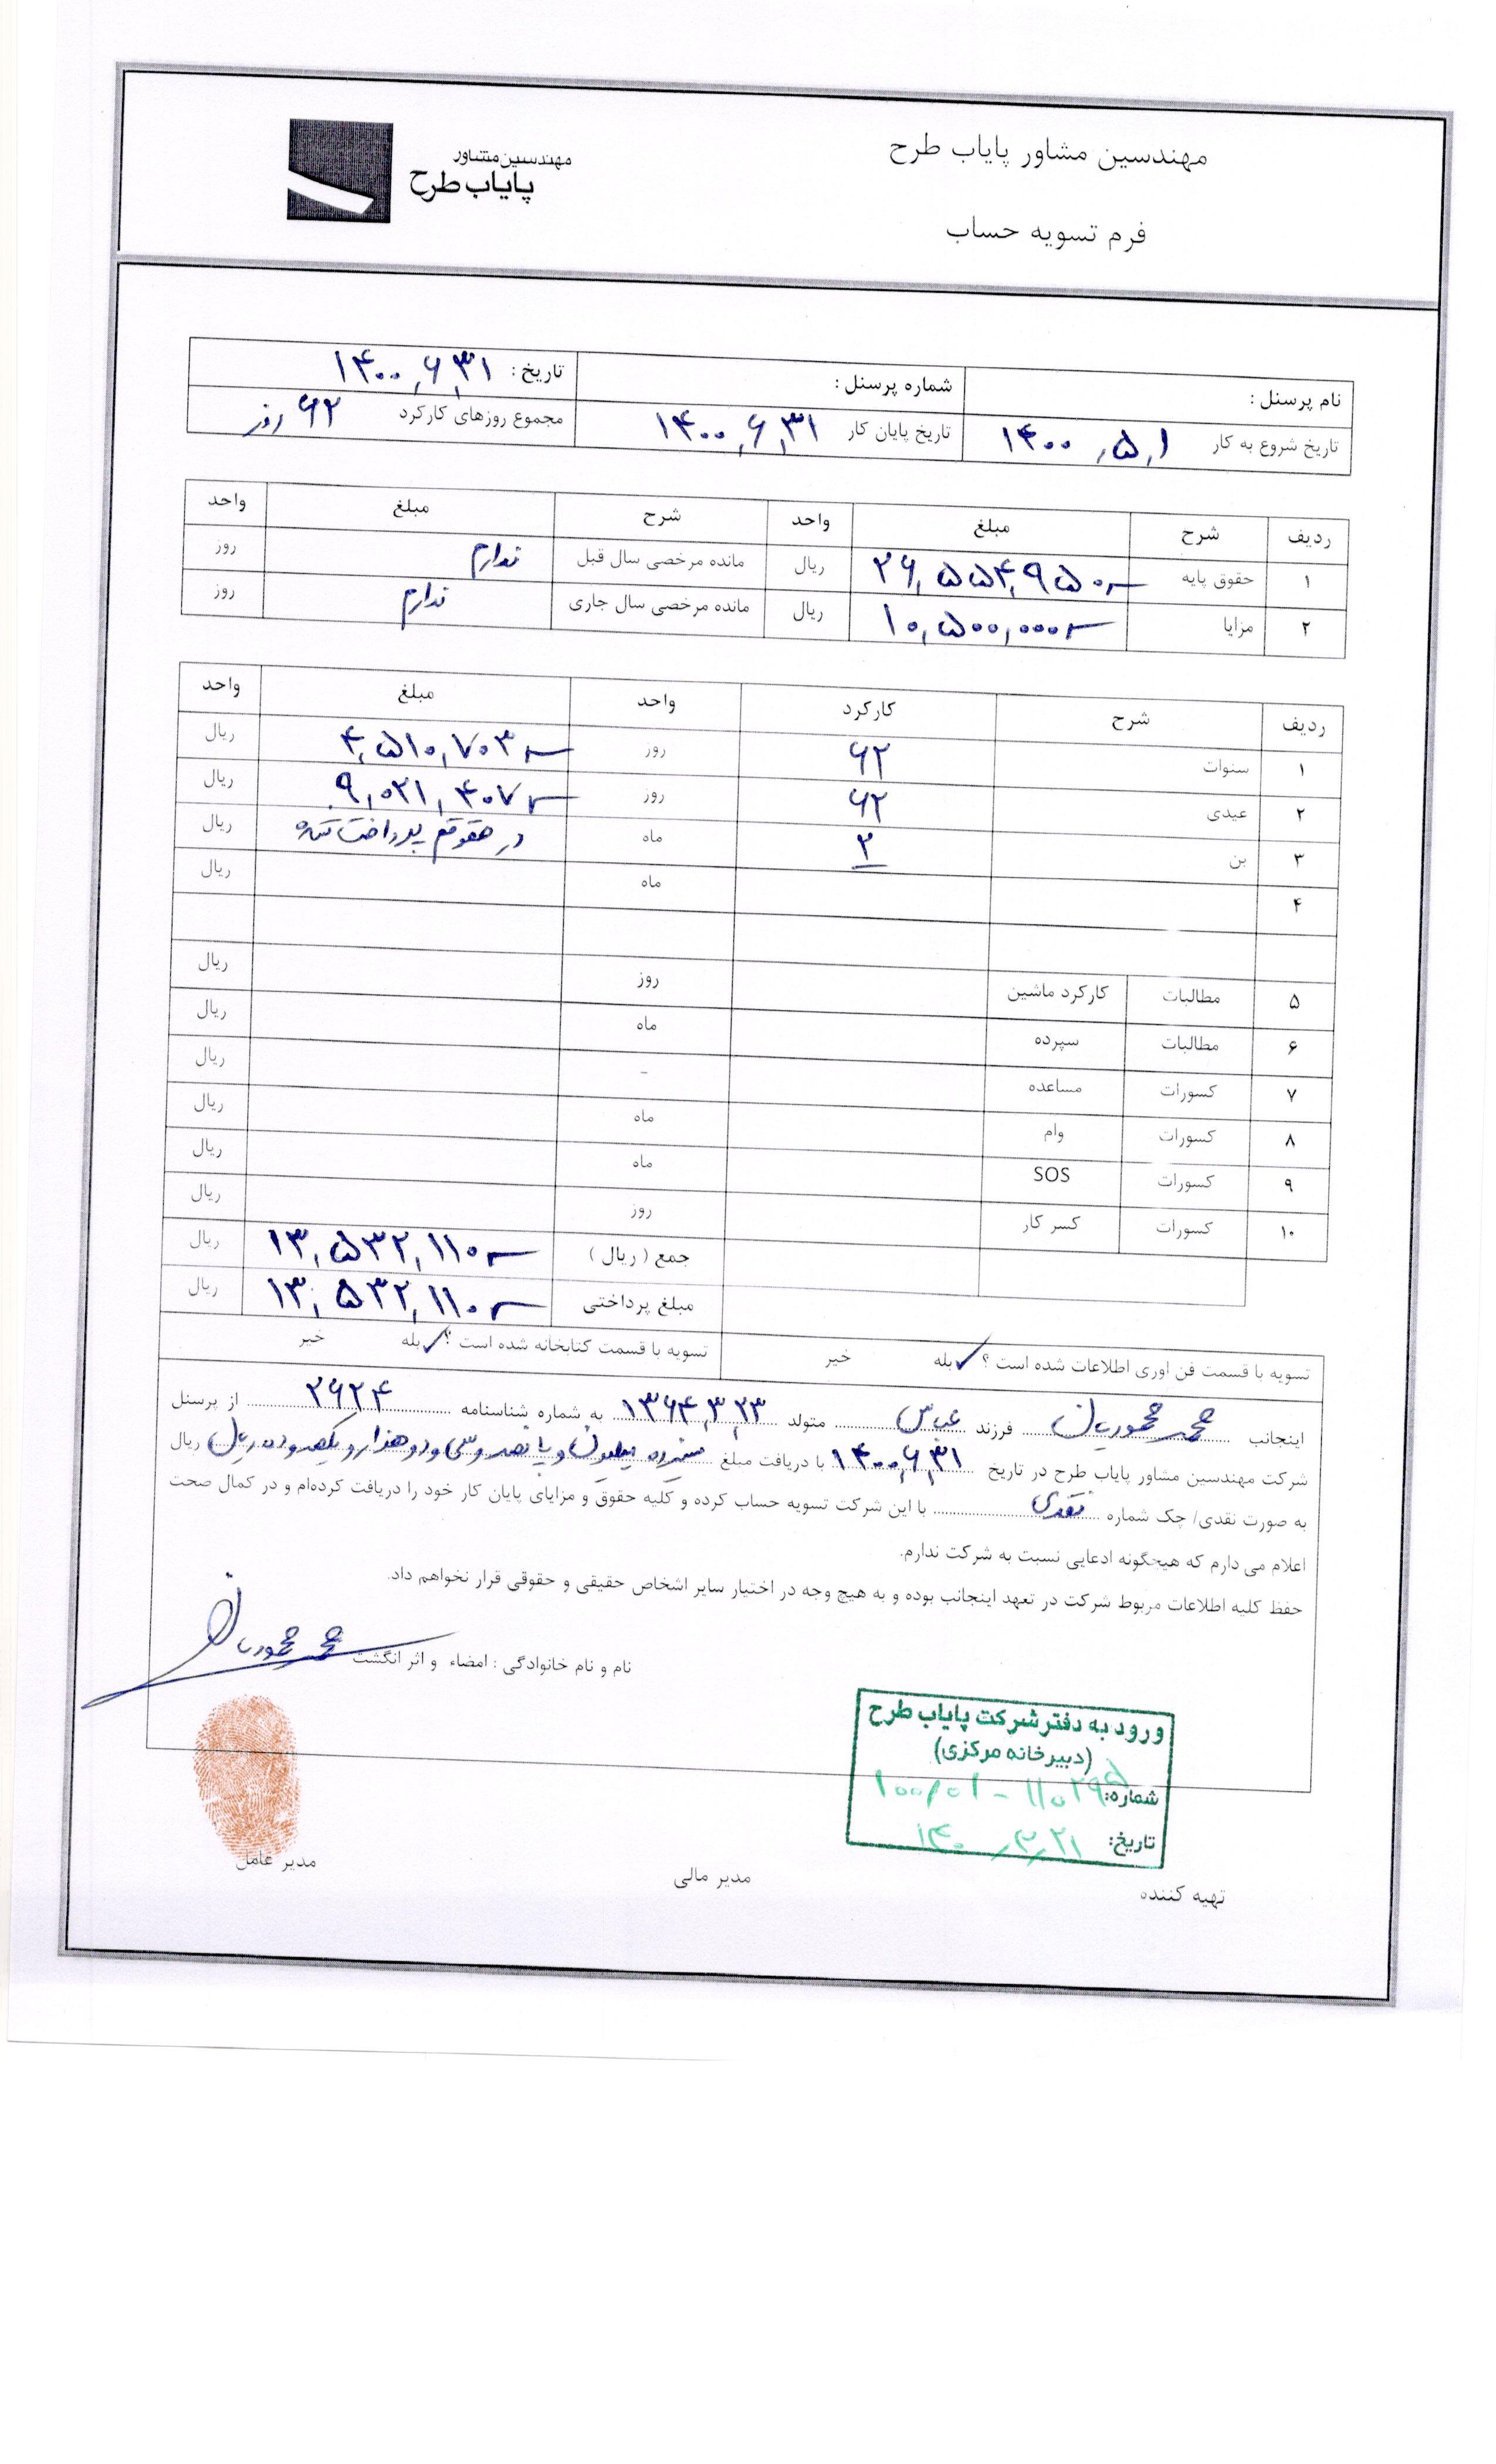 مهندسین مشاور پایاب طرح
مهندسین مشاور
پایاب طرح
فرم تسویه حساب
نام پرسنل : شماره پرسنل : تاریخ : ۱۴۰۰,۶,۳۱
تاریخ شروع به کار ۱۴۰۰,۵,۱ تاریخ پایان کار ۱۴۰۰,۶,۳۱ مجموع روزهای کارکرد ۶۲ روز
ردیف شرح مبلغ واحد شرح مبلغ واحد
۱ حقوق پایه ۲۶,۵۵۴,۹۵۰ ریال مانده مرخصی سال قبل ندارم روز
۲ مزایا ۱۰,۵۰۰,۰۰۰ ریال مانده مرخصی سال جاری ندارم روز
ردیف شرح کارکرد واحد مبلغ واحد
۱ سنوات ۶۲ روز ۴,۵۱۰,۷۰۳ ریال
۲ عیدی ۶۲ روز ۹,۰۲۱,۴۰۷ ریال
۳ بن ۲ ماه در حقوقم پرداخت شده ریال
۴ ماه ریال
۵ مطالبات کارکرد ماشین روز ریال
۶ مطالبات سپرده ماه ریال
۷ کسورات مساعده - ریال
۸ کسورات وام ماه ریال
۹ کسورات SOS ماه ریال
۱۰ کسورات کسر کار روز ریال
جمع ( ریال ) ۱۳,۵۳۲,۱۱۰ ریال
مبلغ پرداختی ۱۳,۵۳۲,۱۱۰ ریال
تسویه با قسمت فن اوری اطلاعات شده است ؟ ✓ بله خیر تسویه با قسمت کتابخانه شده است ؟ ✓ بله خیر
اینجانب محمد محمودیان فرزند عباس متولد ۱۳۶۴,۳,۲۳ به شماره شناسنامه ۲۶۲۴ از پرسنل
شرکت مهندسین مشاور پایاب طرح در تاریخ ۱۴۰۰,۶,۳۱ با دریافت مبلغ سیزده میلیون و پانصد و سی و دو هزار و یکصد و ده ریال ریال
به صورت نقدی/ چک شماره نقدی با این شرکت تسویه حساب کرده و کلیه حقوق و مزایای پایان کار خود را دریافت کرده‌ام و در کمال صحت
اعلام می دارم که هیچگونه ادعایی نسبت به شرکت ندارم.
حفظ کلیه اطلاعات مربوط شرکت در تعهد اینجانب بوده و به هیچ وجه در اختیار سایر اشخاص حقیقی و حقوقی قرار نخواهم داد.
نام و نام خانوادگی : امضاء و اثر انگشت محمد محمودیان
ورود به دفتر شرکت پایاب طرح
(دبیرخانه مرکزی)
شماره: ۱۰۰/۰۱ - ۱۱۰۲۹۵
تاریخ:
تهیه کننده مدیر مالی مدیر عامل